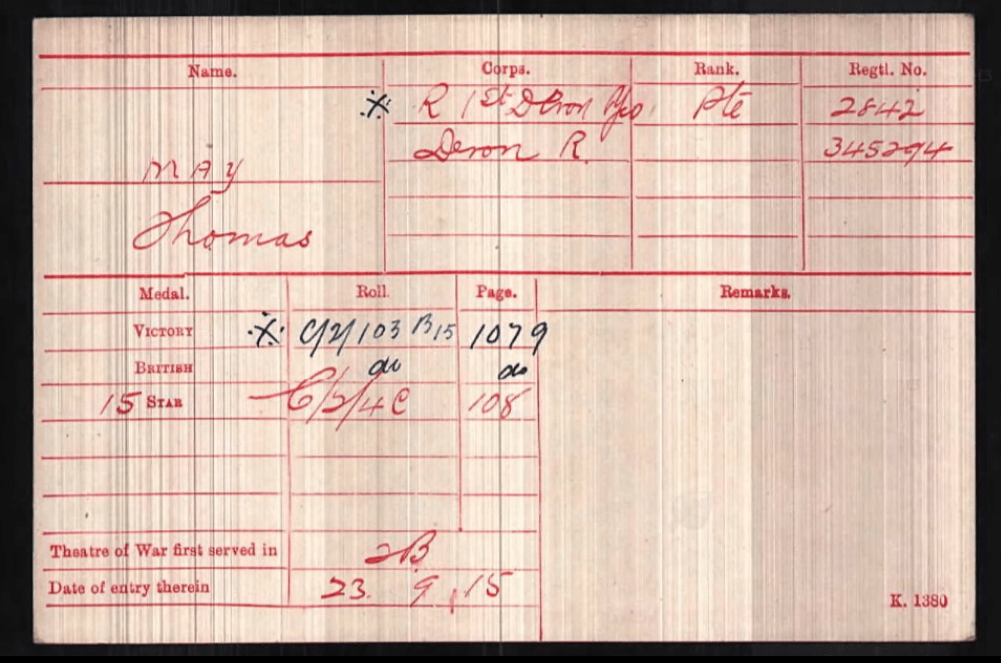 Name. Corps. Rank. Regtl. No.
※ R 1st Devon Yeo Pte 2842
Devon R. 345294
MAY
Thomas
Medal. Roll. Page. Remarks.
VICTORY ※ C/2/103 B15 1079
BRITISH do do
15 STAR C/2/4C 108
Theatre of War first served in 2B
Date of entry therein 23. 9. 15
K. 1380